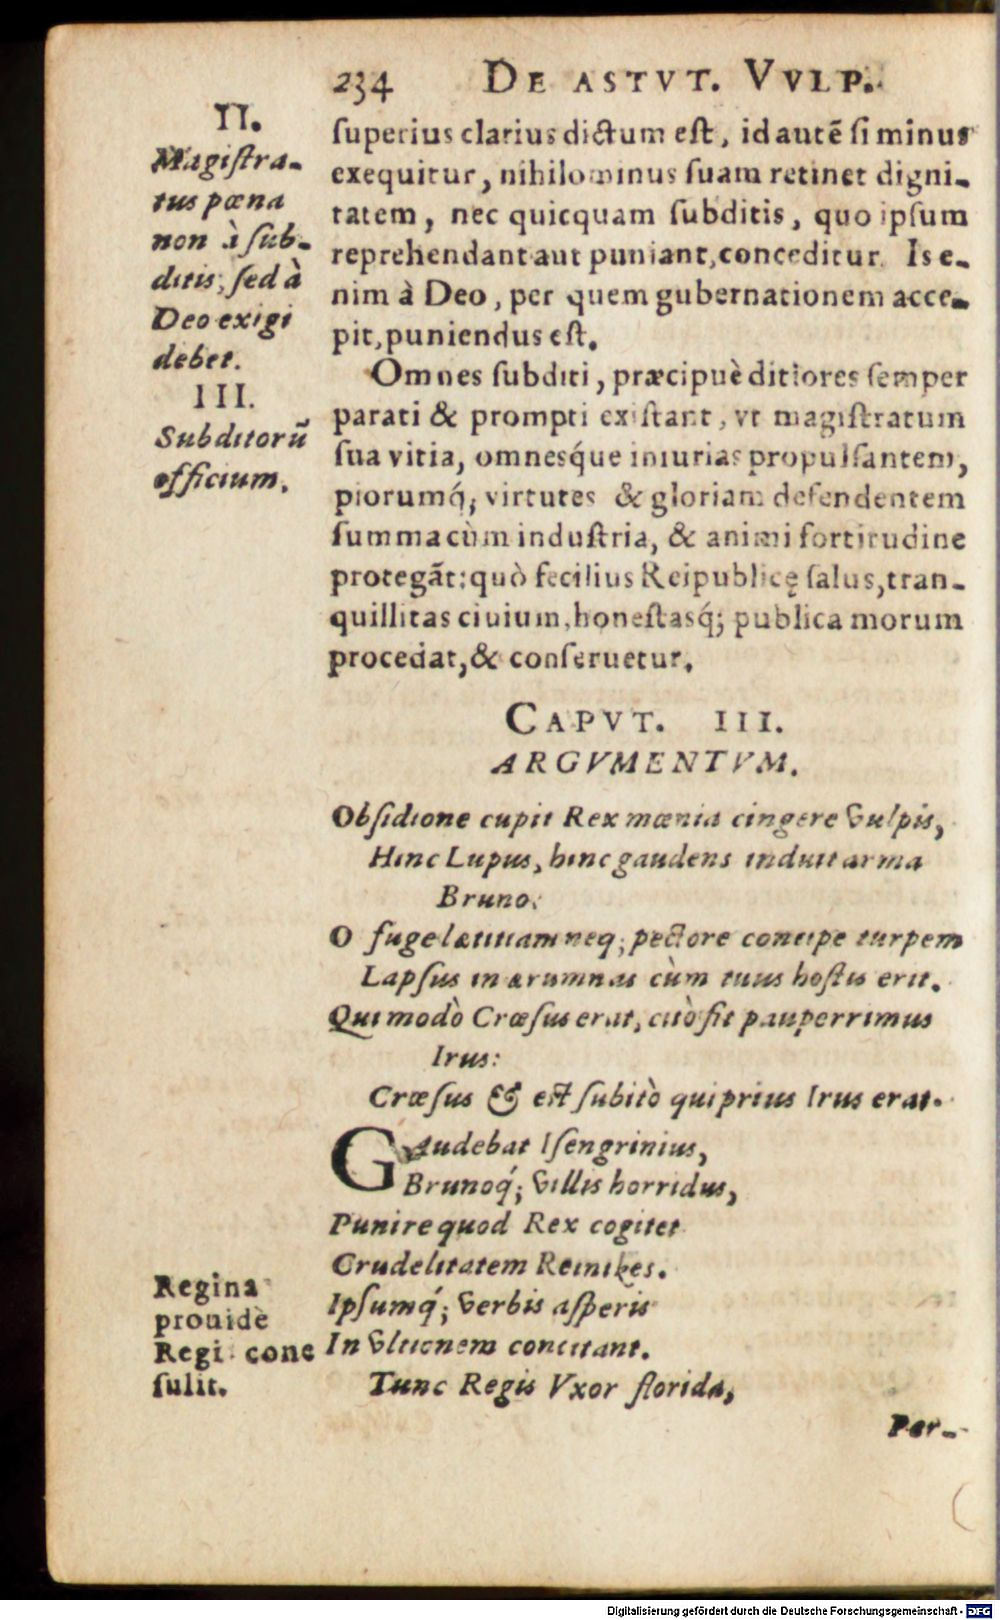 234 DE ASTVT. VVLP.
II.
Magiſtra-
tus pœna
non à ſub-
ditis, ſed à
Deo exigi
debet.
III.
Subditorũ
officium.
ſuperius clarius dictum eſt, id autẽ ſi minus
exequitur, nihilominus ſuam retinet digni-
tatem, nec quicquam ſubditis, quo ipſum
reprehendant aut puniant, conceditur. Is e-
nim à Deo, per quem gubernationem acce-
pit, puniendus eſt.
Omnes ſubditi, præcipuè ditiores ſemper
parati & prompti exiſtant, vt magiſtratum
ſua vitia, omnesq́ue iniurias propulſantem,
piorumq́; virtutes & gloriam defendentem
ſumma cùm induſtria, & animi fortitudine
protegãt: quò fecilius Reipublicę ſalus, tran-
quillitas ciuium, honeſtasq́; publica morum
procedat, & conſeruetur.
CAPVT. III.
ARGVMENTVM.
Obſidione cupit Rex mœnia cingere Vulpis,
Hinc Lupus, hinc gaudens induit arma
Bruno.
O fuge lætitiam neq; pectore concipe turpem
Lapſus in ærumnas cùm tuus hoſtis erit.
Qui modò Crœſus erat, citò fit pauperrimus
Irus:
Crœſus & eſt ſubitò qui prius Irus erat.
GAudebat Iſengrinius,
Brunoq́; Villis horridus,
Punire quod Rex cogitet
Crudelitatem Reinikes.
Ipſumq́; Verbis aſperis
In Vltionem concitant.
Tunc Regis Vxor florida,
Regina
prouidè
Regi cone
ſulit.
Per-
Digitalisierung gefördert durch die Deutsche Forschungsgemeinschaft - DFG